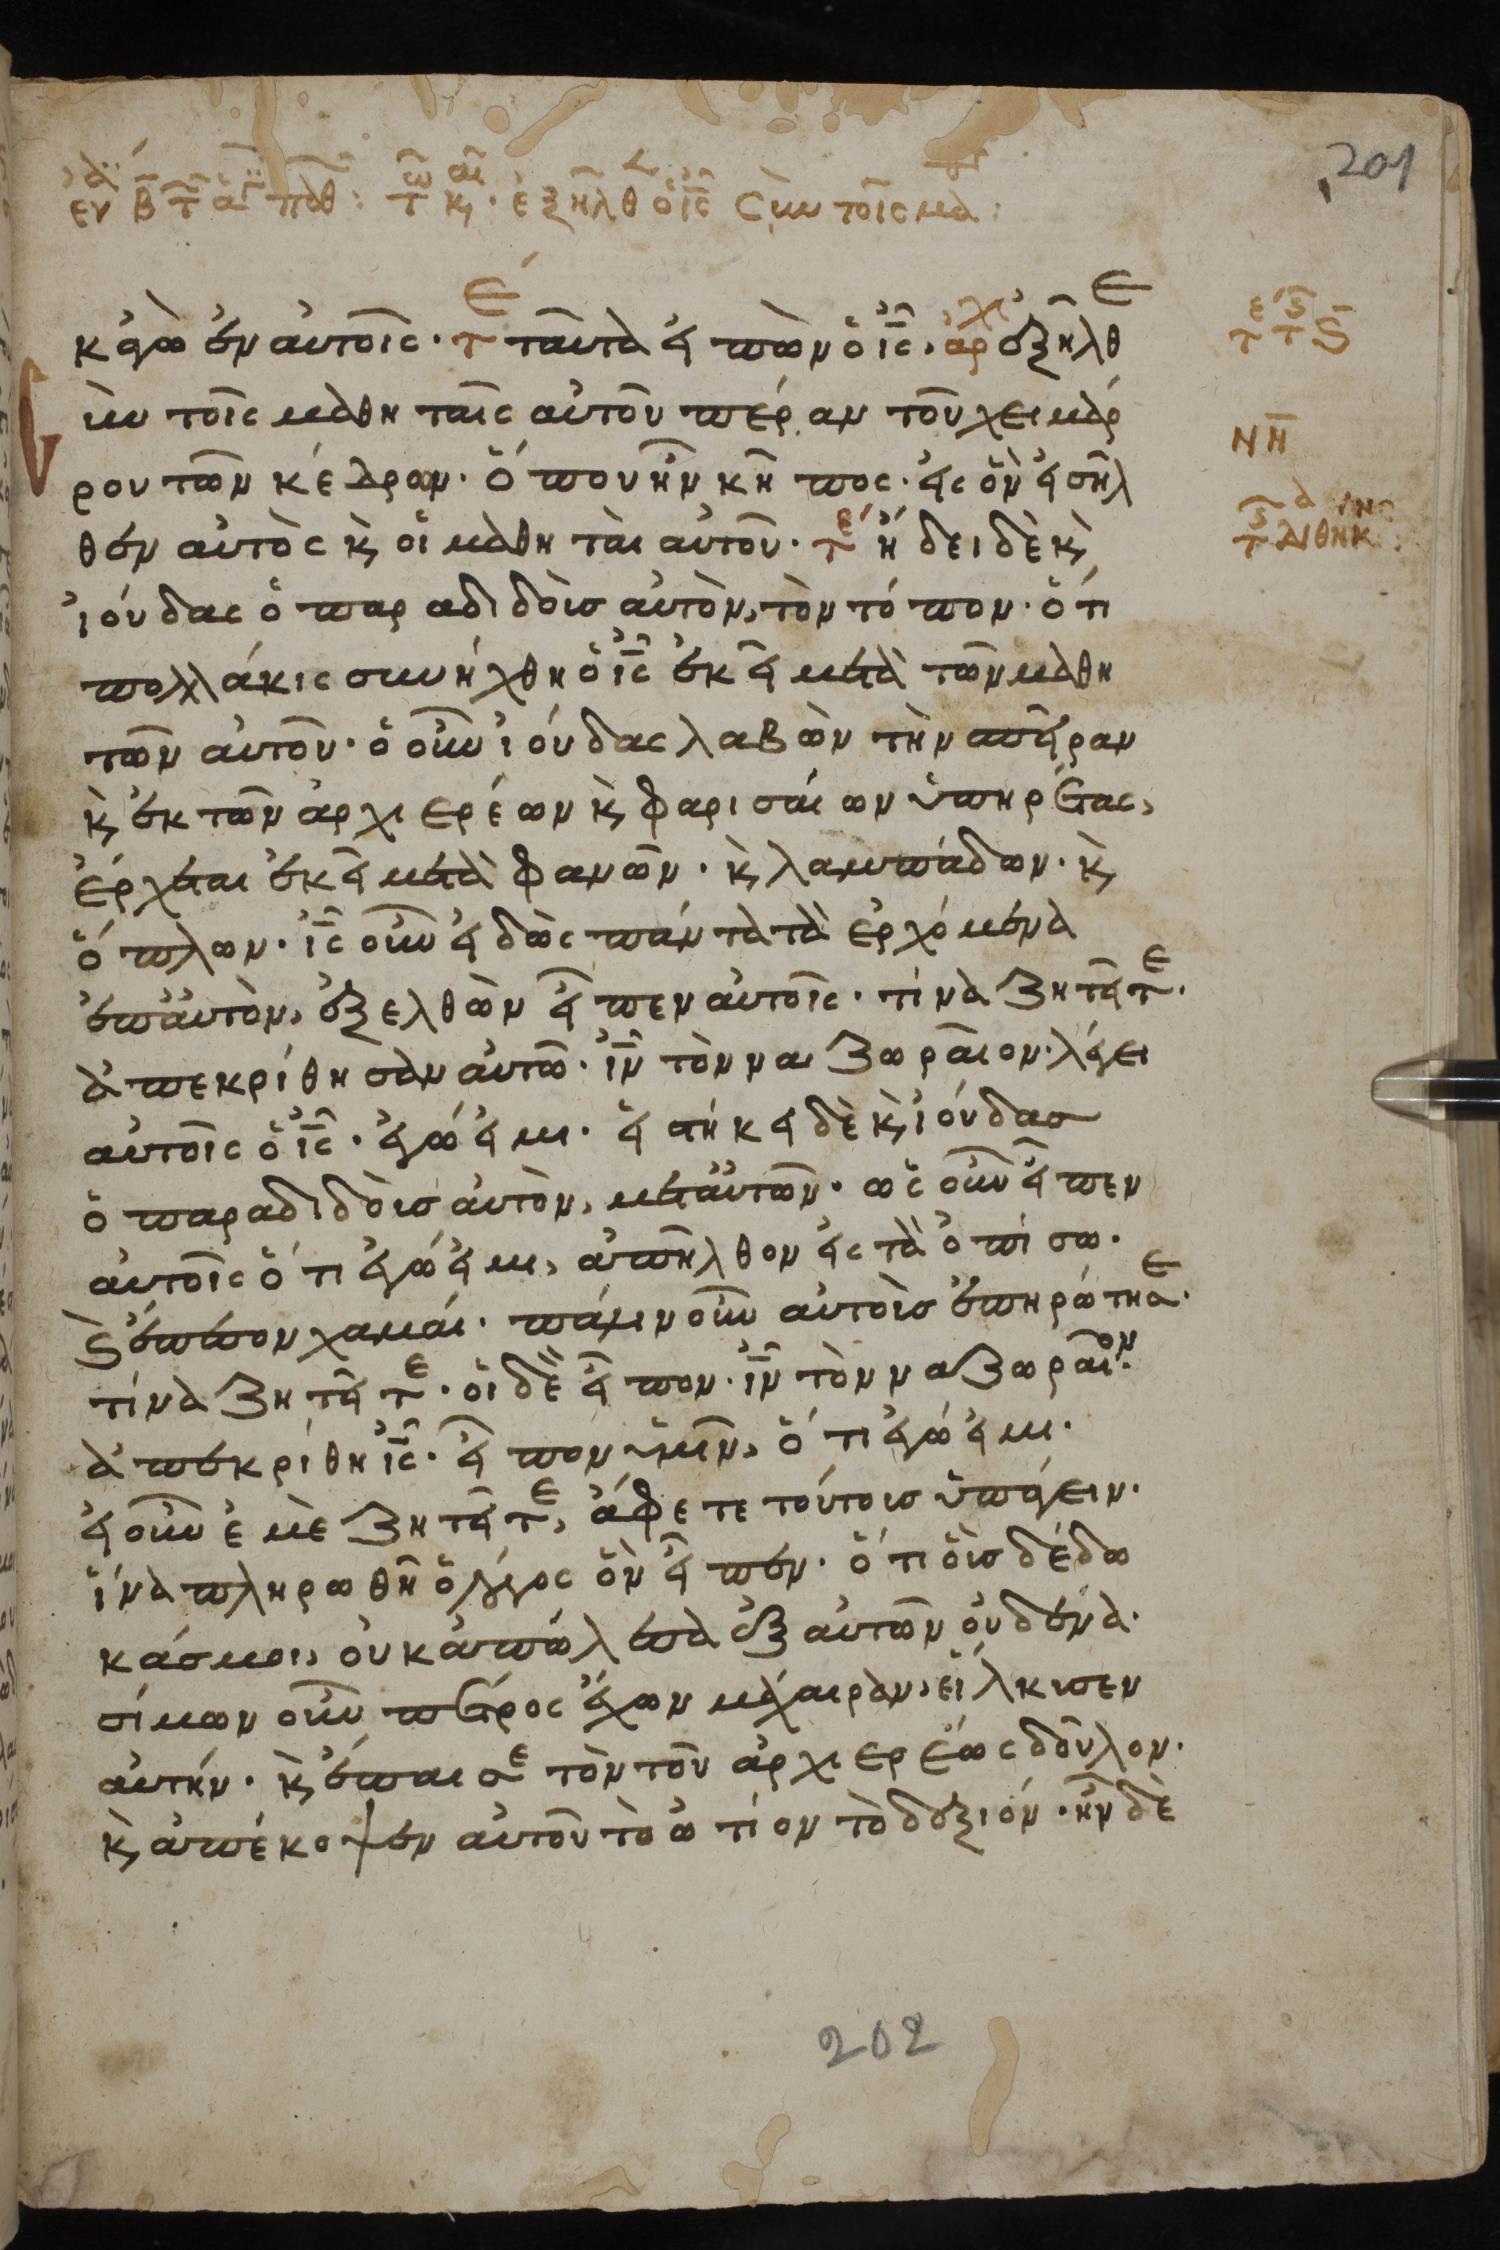 201
κἀγὼ ἐν αὐτοῖς· τ ταῦτα εἰπὼν ὁ ις, αρχ ἐξῆλθε
σὺν τοῖς μαθηταῖς αὐτοῦ πέραν τοῦ χειμάρ
ρου τῶν κέδρων· ὅπου ἦν κῆπος· εἰς ὃν εἰσῆλ
θεν αὐτὸς κ οἱ μαθηταὶ αὐτοῦ· τ ἤδει δὲ κ
ἰούδας ὁ παραδιδοὺς αὐτὸν, τὸν τόπον· ὅτι
πολλάκις συνήχθη ὁ ις ἐκεῖ μετὰ τῶν μαθη
τῶν αὐτοῦ· ὁ οὖν ἰούδας λαβὼν τὴν σπεῖραν
κ ἐκ τῶν ἀρχιερέων κ φαρισαίων ὑπηρέτας,
ἔρχεται ἐκεῖ μετὰ φανῶν· κ λαμπάδων· κ
ὅπλων· ις οὖν εἰδὼς πάντα τὰ ἐρχόμενα
ἐπ αὐτὸν, ἐξελθὼν εἶπεν αὐτοῖς· τίνα ζητεῖτε·
ἀπεκρίθησαν αὐτῶ· ιν τὸν ναζωραῖον· λέγει
αὐτοῖς ὁ ις· ἐγώ εἰμι· εἱστήκει δὲ κ ἰούδας
ὁ παραδιδοὺς αὐτὸν, μετ αὐτῶν· ὡς οὖν εἶπεν
αὐτοῖς ὅτι ἐγώ εἰμι, ἀπῆλθον εἰς τὰ ὀπίσω·
ϛ ἔπεσον χαμαί· πάλιν οὖν αὐτοὺς ἐπηρώτησε·
τίνα ζητεῖτε· οἱ δὲ εἶπον· ιν τὸν ναζωραῖον·
ἀπεκρίθη ις· εἶπον ὑμῖν, ὅτι ἐγώ εἰμι·
εἰ οὖν ἐμὲ ζητεῖτε, ἄφετε τούτους ὑπάγειν·
ἵνα πληρωθῆ ὁ λόγος ὃν εἶπεν· ὅτι οὓς δέδω
κάς μοι, οὐκ ἀπώλεσα ἐξ αὐτῶν οὐδένα·
σίμων οὖν πέτρος ἔχων μάχαιραν, εἵλκυσεν
αὐτήν· κ ἔπαισε τὸν τοῦ ἀρχιερέως δοῦλον·
κ ἀπέκοψεν αὐτοῦ τὸ ὠτίον τὸ δεξιόν· ἦν δὲ
202